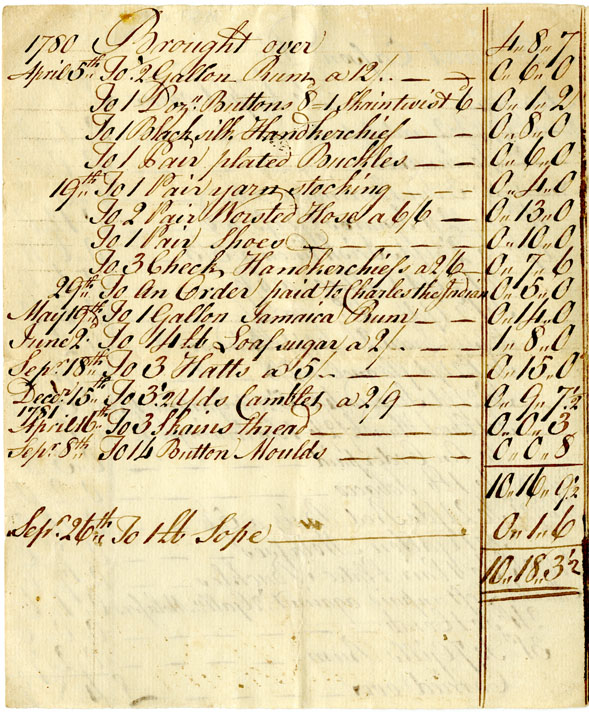 1780 Brought over 4„ 8„ 7
April 5th To ½ Gallon Rum a 12/.. 0„ 6„ 0
To 1 Dozn. Buttons 8d 1 Skain twist 6d 0„ 1„ 2
To 1 Black silk Handkerchief 0„ 8„ 0
To 1 Pair plated Buckles 0„ 6„ 0
19th To 1 Pair yarn stocking 0„ 4„ 0
To 2 Pair Worsted Hose a 6/6 0„ 13„ 0
To 1 Pair Shoes 0„ 10„ 0
To 3 Check Handkerchiefs a 2/6 0„ 7„ 6
29th To An Order paid to Charles the Indian 0„ 5„ 0
May 19th To 1 Gallon Jamaica Rum 0„ 14„ 0
June 2d To 14 lb Loaf sugar a 2/ 1„ 8„ 0
Sepr. 18th To 3 Hatts a 5/.. 0„ 15„ 0
Decr. 15th To 3½ Yds Camblet a 2/9 0„ 9„ 7½
1781
April 16th To 3 Skains thread 0„ 0„ 3
Sepr. 8th To 14 Button Moulds 0„ 0„ 8
10„ 16„ 9½
Sepr. 26th To 1 lb Sope 0„ 1„ 6
10„ 18„ 3½